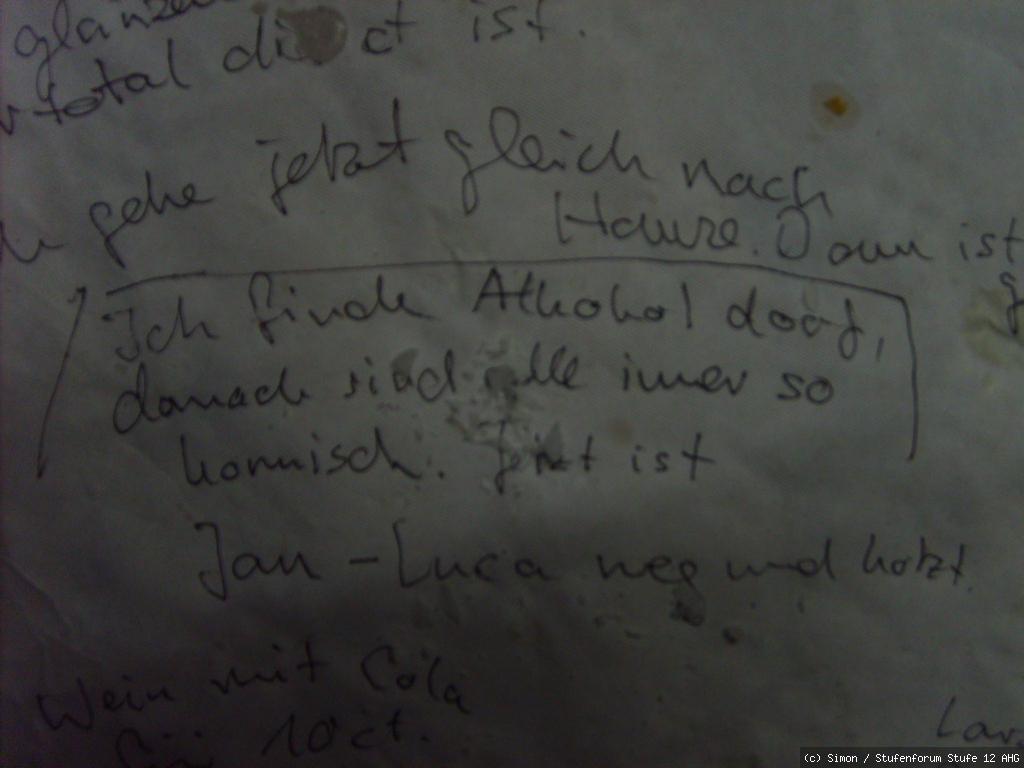 glänze
total di ct ist.
gehe jetzt gleich nach
Hause. Dann ist
Ich finde Alkohol doof,
danach sind alle imer so
kommisch. Jetzt ist
Jan-Luca weg und kotzt
Wein mit Cola
für 10ct.
Lar
(c) Simon / Stufenforum Stufe 12 AHG